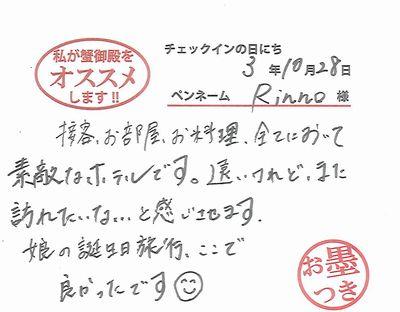 私が蟹御殿を
オススメ
します!!
チェックインの日にち
3年10月28日
ペンネーム Rinno 様
接客、お部屋、お料理、全てにおいて
素敵なホテルです。遠いけれど、また
訪れたいな、、と感じさせます。
娘の誕生日旅行、ここで
良かったです
お墨
つき